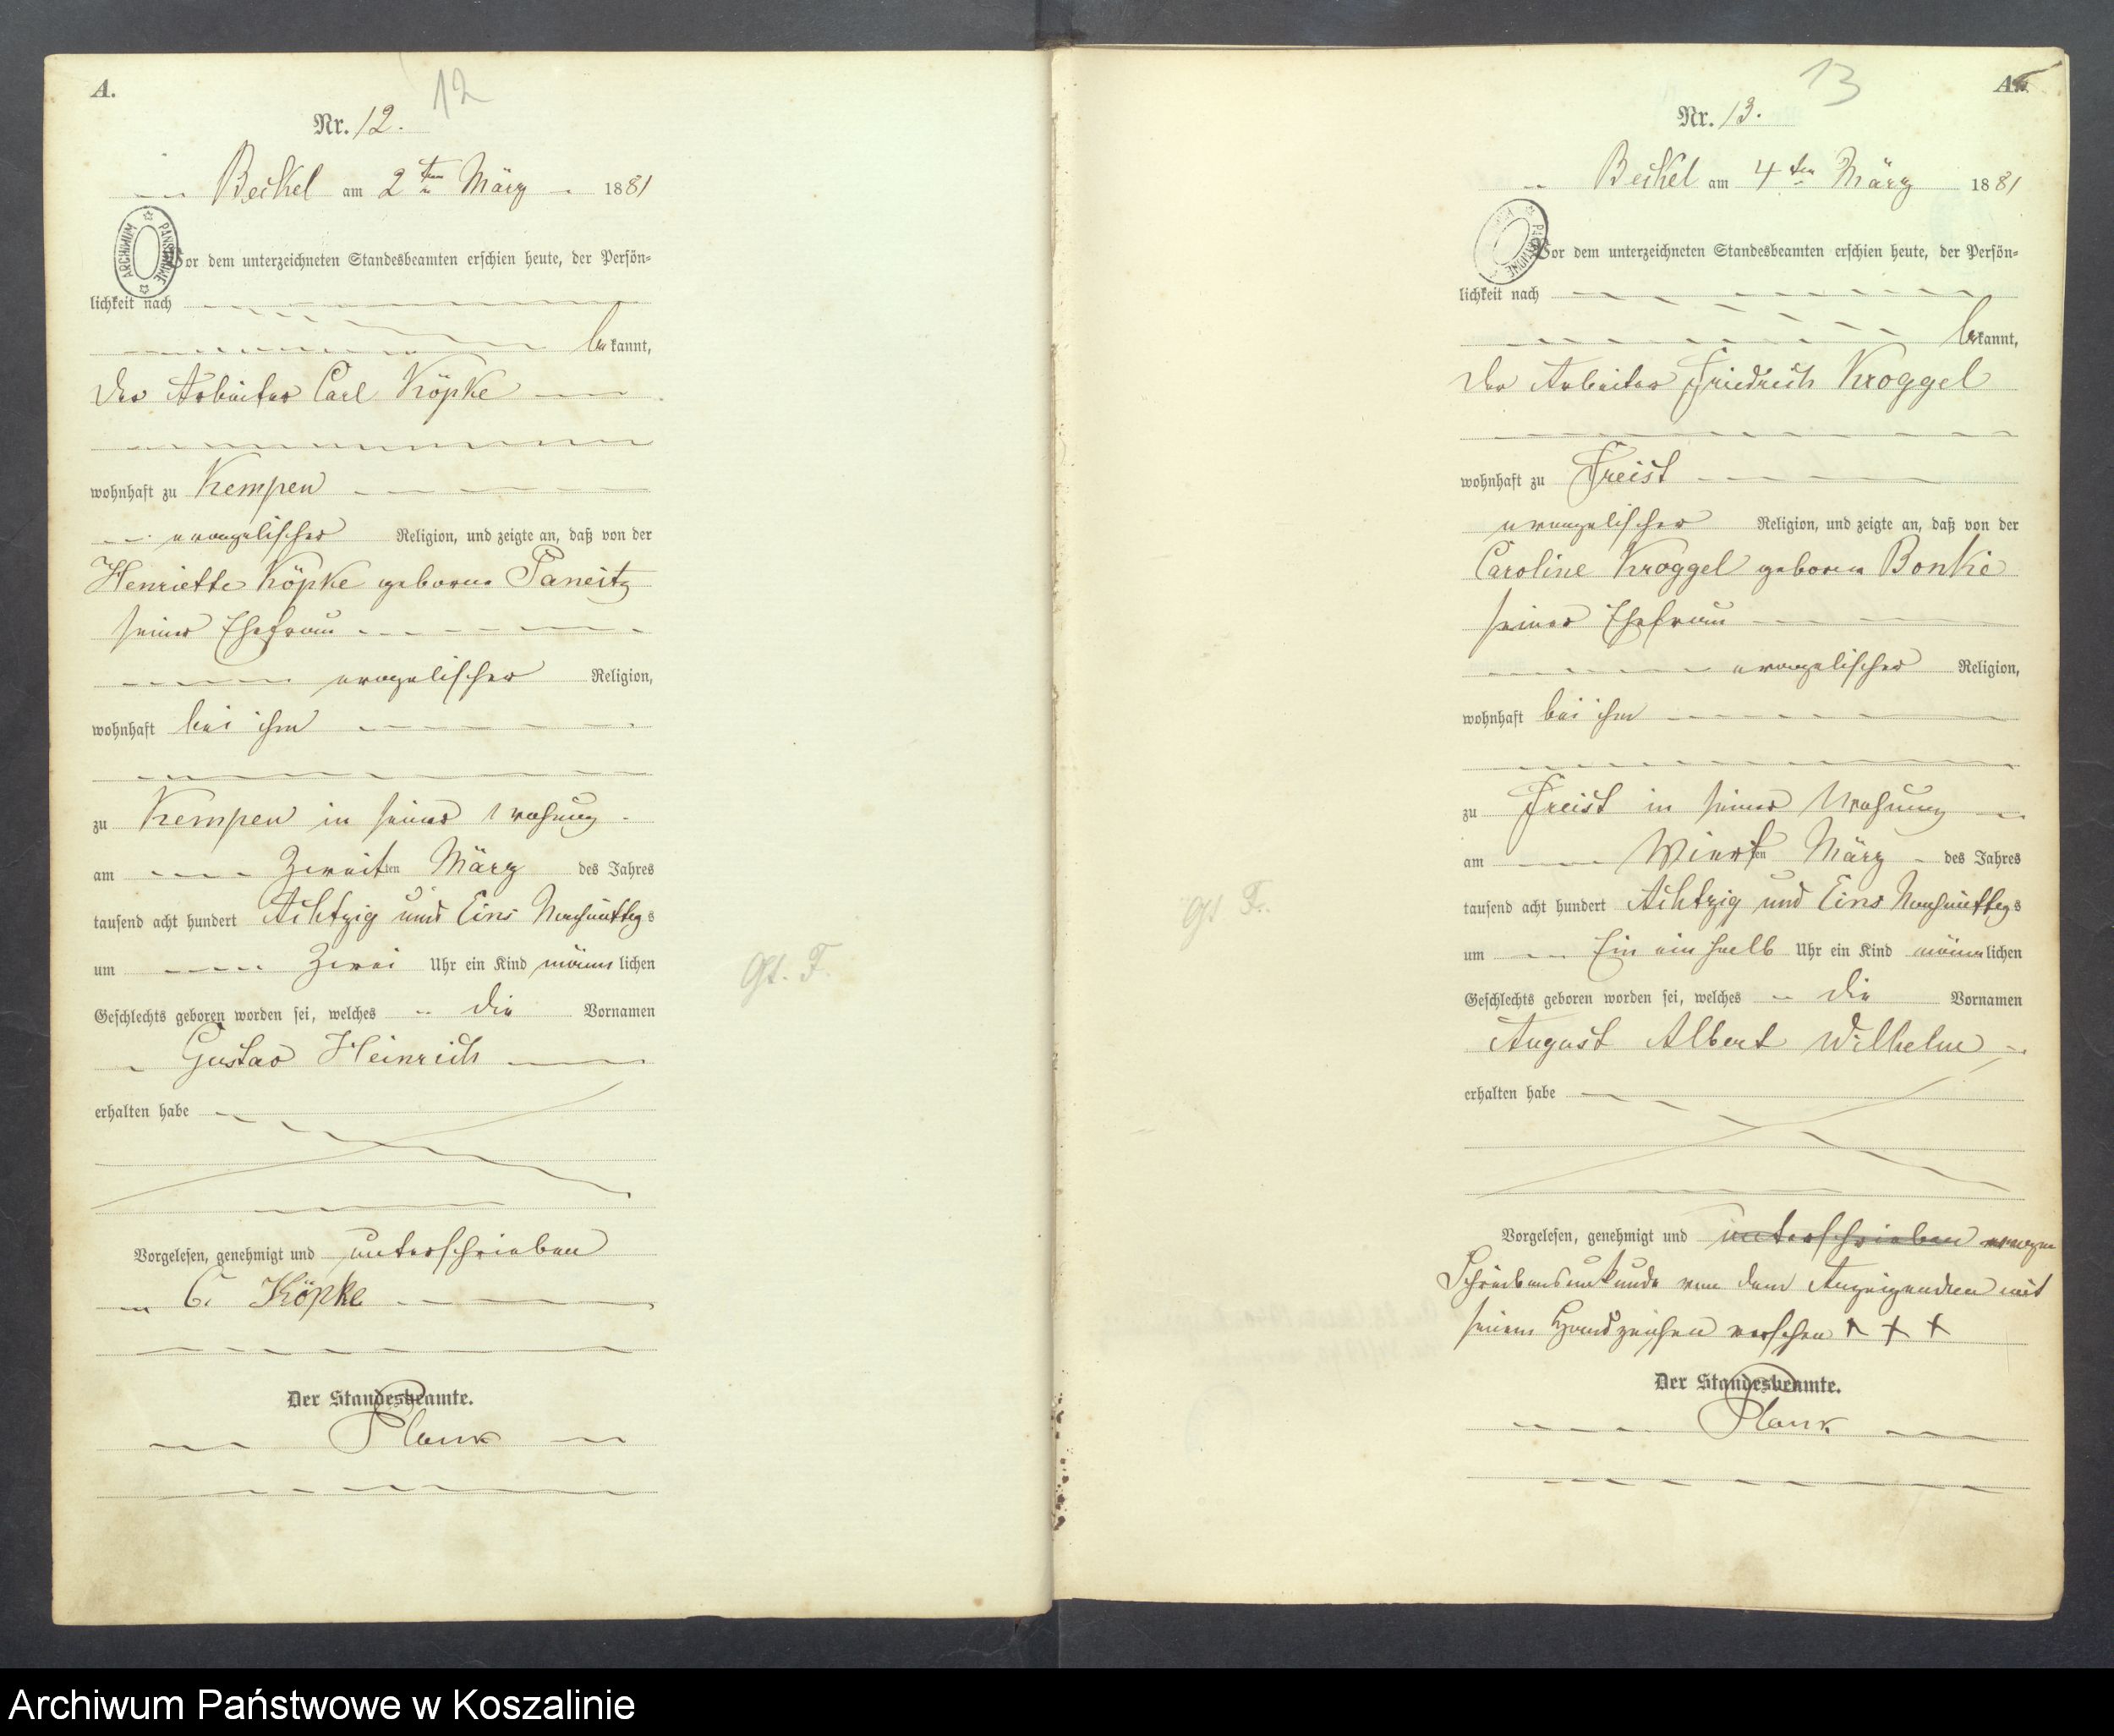 A.
12
Nr. 12.
Beckel am 2ten März 1881
ARCHIWUM PAŃSTWOWE
Vor dem unterzeichneten Standesbeamten erschien heute, der Persön-
lichkeit nach
bekannt,
der Arbeiter Carl Köpke
wohnhaft zu Kempen
evangelischer Religion, und zeigte an, daß von der
Henriette Köpke geborne Paneitz
seiner Ehefrau
evangelischer Religion,
wohnhaft bei ihm
zu Kempen in seiner Wohnung
am Zweiten März des Jahres
tausend acht hundert Achtzig und Eins Nachmittags
um Zwei Uhr ein Kind männlichen
Geschlechts geboren worden sei, welches die Vornamen
Gustav Heinrich
erhalten habe
Vorgelesen, genehmigt und unterschrieben
C. Köpke
Der Standesbeamte.
Plank
Gt. F.
A.
13
Nr. 13.
Beckel am 4ten März 1881
Vor dem unterzeichneten Standesbeamten erschien heute, der Persön-
lichkeit nach
bekannt,
der Arbeiter Friedrich Kroggel
wohnhaft zu Freist
evangelischer Religion, und zeigte an, daß von der
Caroline Kroggel geborne Bonke
seiner Ehefrau
evangelischer Religion,
wohnhaft bei ihm
zu Freist in seiner Wohnung
am Vierten März des Jahres
tausend acht hundert Achtzig und Eins Nachmittags
um Ein ein halb Uhr ein Kind männlichen
Geschlechts geboren worden sei, welches die Vornamen
August Albert Wilhelm
erhalten habe
Vorgelesen, genehmigt und unterschrieben wegen
Schreibensunkunde von dem Anzeigenden mit
seinem Handzeichen versehen + + +
Der Standesbeamte.
Plank
Gt F.
Archiwum Państwowe w Koszalinie